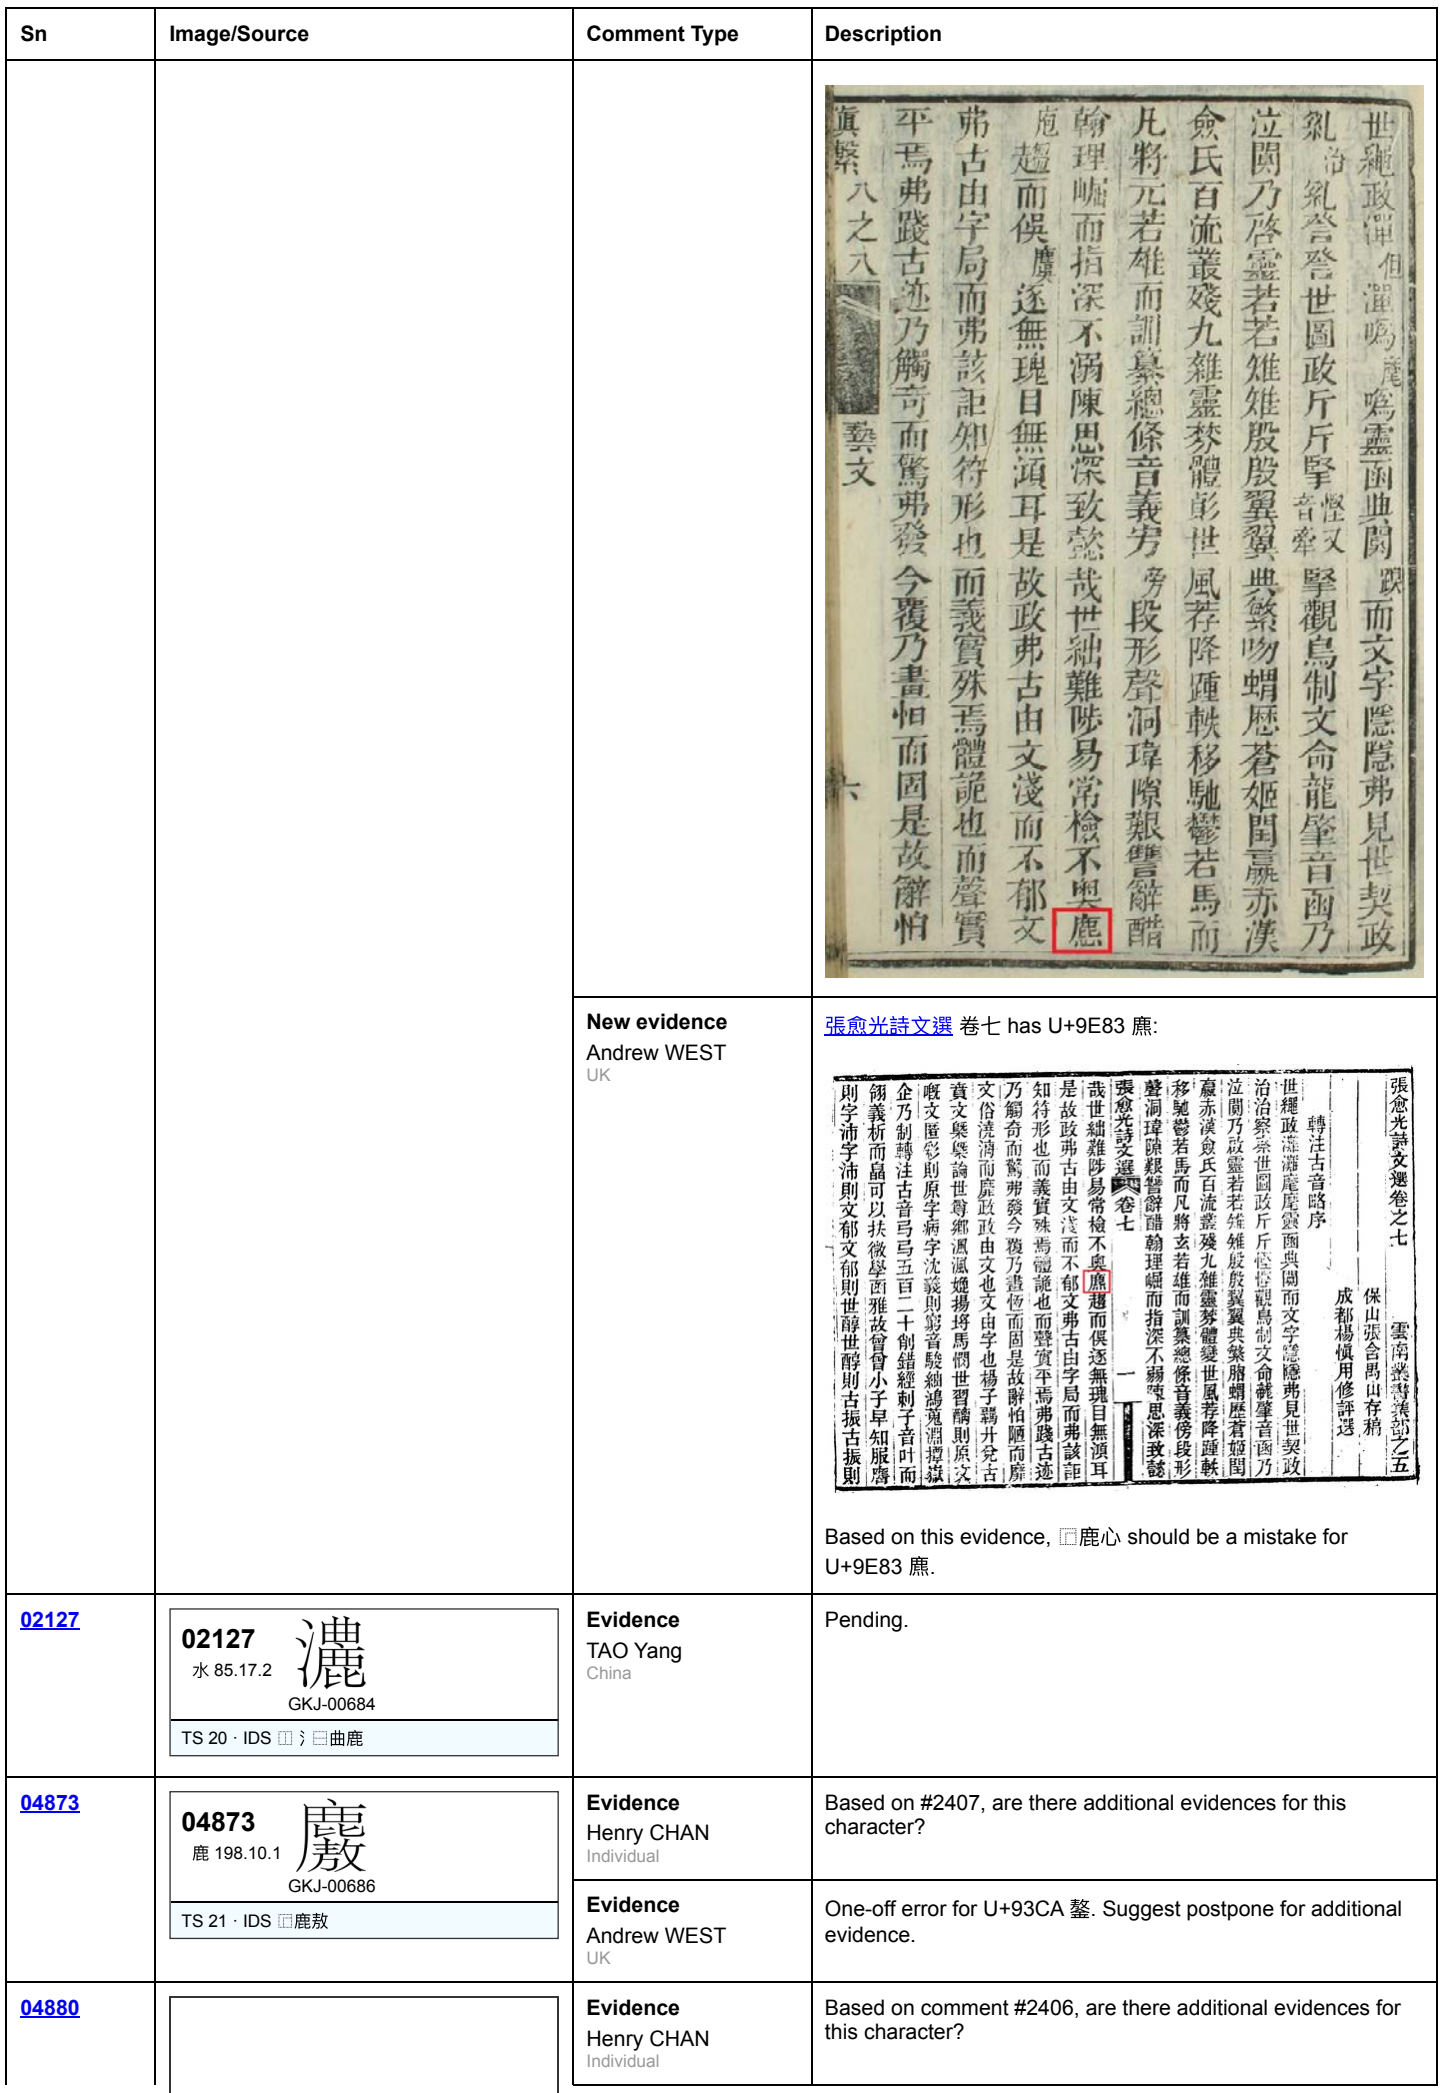 Sn Image/Source Comment Type Description
而文字隱隱弗見世契政
世圖政斤斤
觀鳥制文命龍肇音函乃
乃啓靈若若雉雉殷殷翼翼典繁吻蝟歷蒼姬閏嬴赤漢
僉氏百流叢殘九雜靈棼體彰世風荐降踵軼移馳鬱若馬而
凡將元若雄而訓纂總條音義㫄段形聲洞瑋隙艱讐辭醋
翰理崛而指深不溺陳思深致懿哉世絀難陟易常檢不奧
趨而俁
逐無瑰目無湏耳是故政弗古由文淺而不郁文
弗古由字局而弗該詎知符形也而義實殊焉體詭也而聲實
平焉弗踐古迹乃觸奇而驚弗發今覆乃晝怕而固是故辭怕
滇繫 八之八 藝文 六
New evidence
Andrew WEST
UK
張愈光詩文選 卷七 has U+9E83 麃:
張愈光詩文選卷之七 雲南叢書集部之五
保山張含禺山存稿
成都楊慎用修評選
轉注古音略序
而文字隱隱弗見世契政
世圖政斤斤
觀鳥制文命龍肇音函乃
乃啟靈若若雉雉殷殷翼翼典繁
蝟歷蒼姬閏
嬴赤漢僉氏百流叢殘九雜靈棼體變世風荐降踵軼
移馳鬱若馬而凡將玄若雄而訓纂總條音義傍段形
聲洞瑋隙艱讐辭醋翰理崛而指深不弱陳思深致懿
張愈光詩文選 卷七 一
哉世絀難陟易常檢不奧麃趨而俁逐無瑰目無湏耳
是故政弗古由文淺而不郁文弗古由字局而弗該詎
知符形也而義實殊焉體詭也而聲實平焉弗踐古迹
乃觸奇而驚弗發今覆乃晝
而固是故辭怕陋而靡
文俗澆漓而靡政政由文也文由字也楊子
企乃制轉注古音
五百二十創錯經刺子音叶而
則字沛字沛則文郁文郁則世醇世醇則古振古振則
Based on this evidence, ⿸鹿心 should be a mistake for
U+9E83 麃.
02127
02127
水 85.17.2
灋
GKJ-00684
TS 20 · IDS ⿰氵⿱曲鹿
Evidence
TAO Yang
China
Pending.
04873
04873
鹿 198.10.1
GKJ-00686
TS 21 · IDS ⿸鹿敖
Evidence
Henry CHAN
Individual
Based on #2407, are there additional evidences for this
character?
Evidence
Andrew WEST
UK
One-off error for U+93CA 鏊. Suggest postpone for additional
evidence.
04880
Evidence
Henry CHAN
Individual
Based on comment #2406, are there additional evidences for
this character?